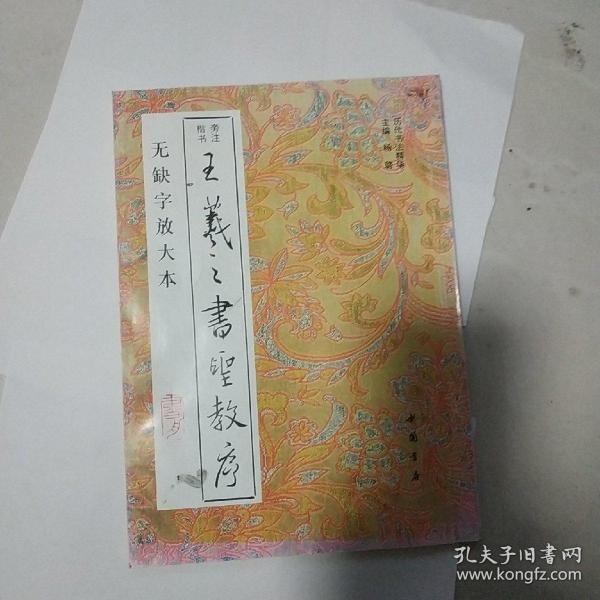 历代书法精华
主编 杨璐
楷书
旁注
王羲之書聖教序
无缺字放大本
中国书店
孔夫子旧书网
www.kongfz.com